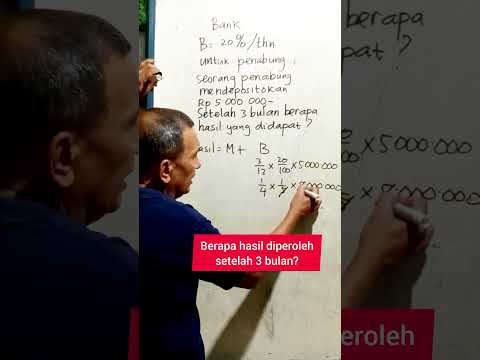 Bank
B = 20%/thn
untuk penabung.
seorang penabung
mendepositokan
Rp 5 000 000-
Setelah 3 bulan berapa
hasil yang didapat?
asil = M + B
3/12 × 20/100 × 5 000.000
1/4 ×
000.000
Berapa hasil diperoleh
setelah 3 bulan?
berapa
dapat?
× 5000.000
000.000
peroleh